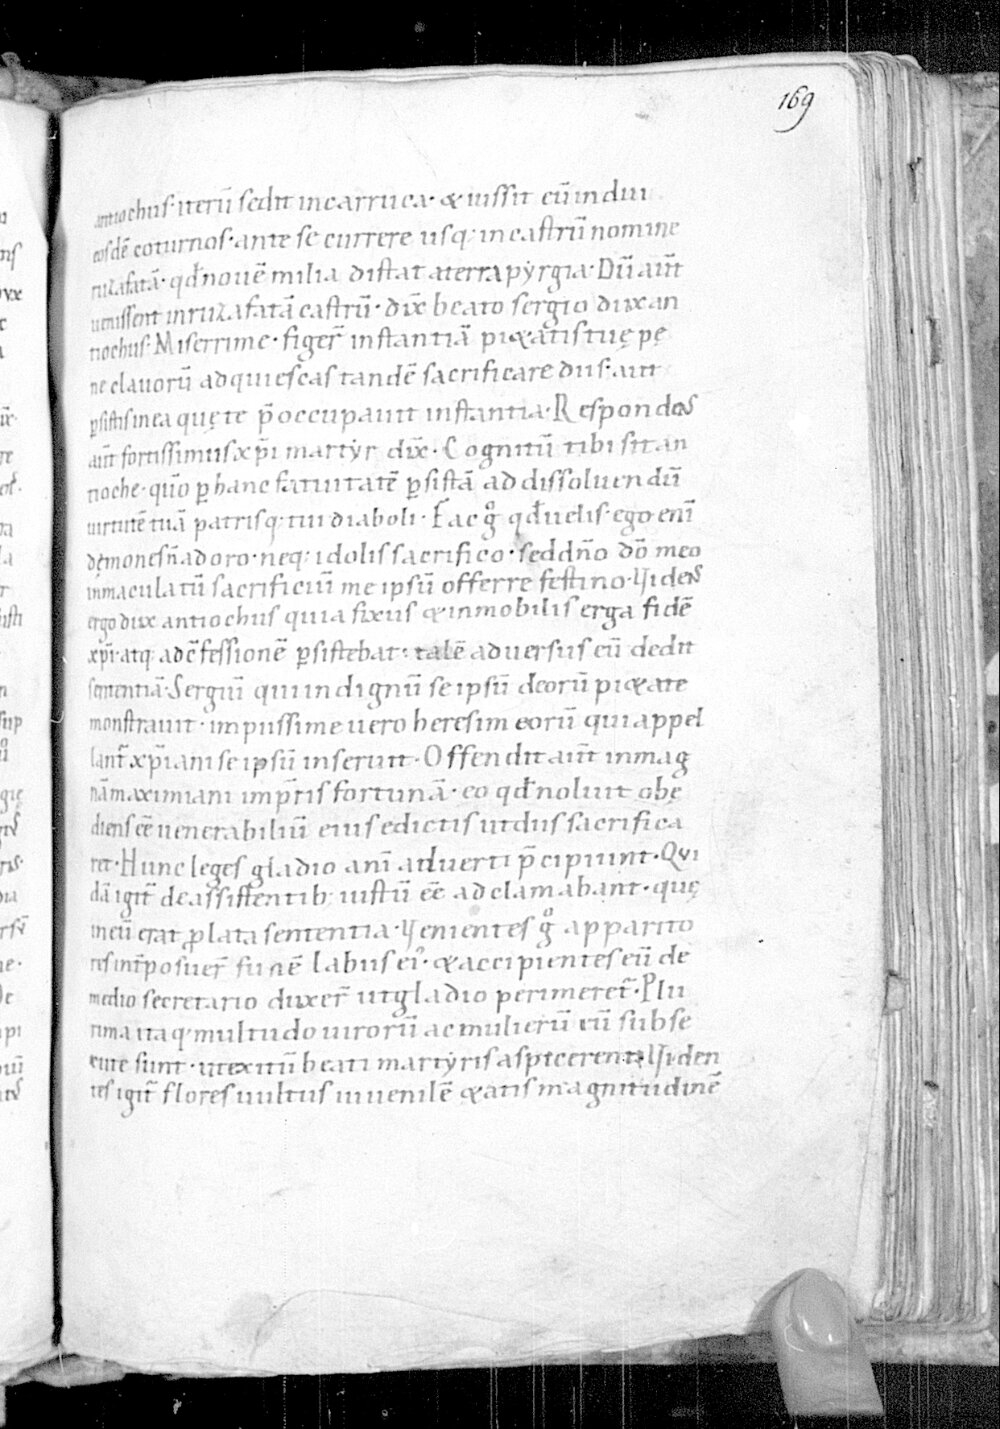 169
antiochus· iterũ sedit incarruca· & iussit eũ indui
eosdẽ coturnos· ante se currere usq; incastrũ nomine
ruzafatã· qđ nouẽ milia distat aterra pyrgia· Dũ aũt
uenissent inruzafatã castrũ· dix̃ beato sergio dux an
tiochus· Miserrime· figer̃ instantiã pi&atis tuę pę
ne clauorũ adquiescas tandẽ sacrificare diis· aut
ꝑsistis inea quę te p̃occupauit instantia· Respondens
aũt fortissimus xp̃i martyr dix̃· Cognitũ tibi sit an
tioche· quõ ꝑ hanc fatuitatẽ ꝑsistã ad dissoluendũ
uirtutẽ tuã patrisq; tui diaboli· Fac g̊ qđ uelis· ego eni̅
dęmones ñ adoro· neq; idolis sacrifico· sed dño dõ meo
inmaculatũ sacrificiũ me ipsũ offerre festino· Videns
ergo dux antiochus quia fixus & inmobilis erga fidẽ
xp̃i· atq; ad c̃fessionẽ ꝑsistebat· talẽ aduersus eũ dedit
sententiã· Sergiũ qui indignũ se ipsũ deorũ pi&ate
monstrauit· impiissime uero heresim eorũ qui appel
lant̃ xp̃iani se ipsũ inseruit· Offendit aũt inmag
nã maximiani imp̃ris fortunã· eo qđ noluit obę
diens eẽ uenerabiliũ eius edictis ut diis sacrifica
ret· Hunc leges gladio ani̅aduerti p̃cipiunt· Qui
dã igit̃ de assistentib; iustũ eẽ adclamabant· quę
ineũ erat ꝓlata sententia· Venientes g̊ apparito
res int̃posuer̃ funẽ labiis ei᷒· & accipientes eũ de
medio secretario duxer̃ ut gladio perimeret̃· Plu
rima itaq; multudo uirorũ ac mulierũ eũ subse
cute sunt· ut exitũ beati martyris aspicerent· Viden
tes igit̃ flores uultus iuuenilẽ &atis magnitudinẽ